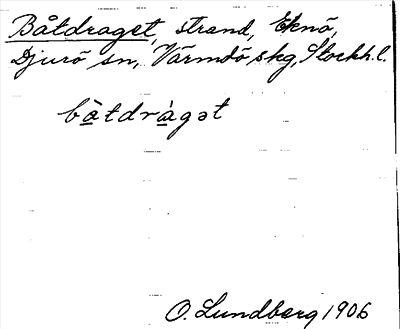 Båtdraget, strand, Eknö,
Djurö sn, Värmdö skg, Stockh. l.
bà̲tdrà̲gət
O. Lundberg 1906